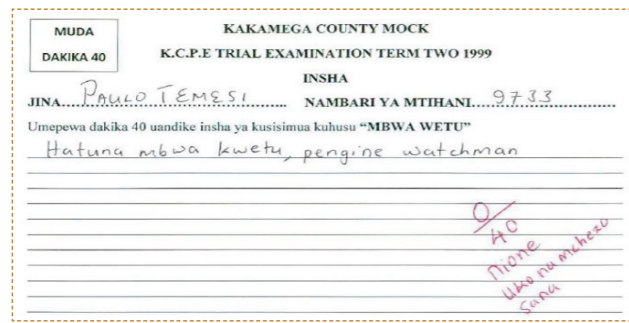 MUDA
DAKIKA 40
KAKAMEGA COUNTY MOCK
K.C.P.E TRIAL EXAMINATION TERM TWO 1999
INSHA
JINA....PAULO TEMESI.......... NAMBARI YA MTIHANI....9733..............
Umepewa dakika 40 uandike insha ya kusisimua kuhusu “MBWA WETU”
Hatuna mbwa kwetu, pengine watchman
0/40
nione
uko na mchezo
sana